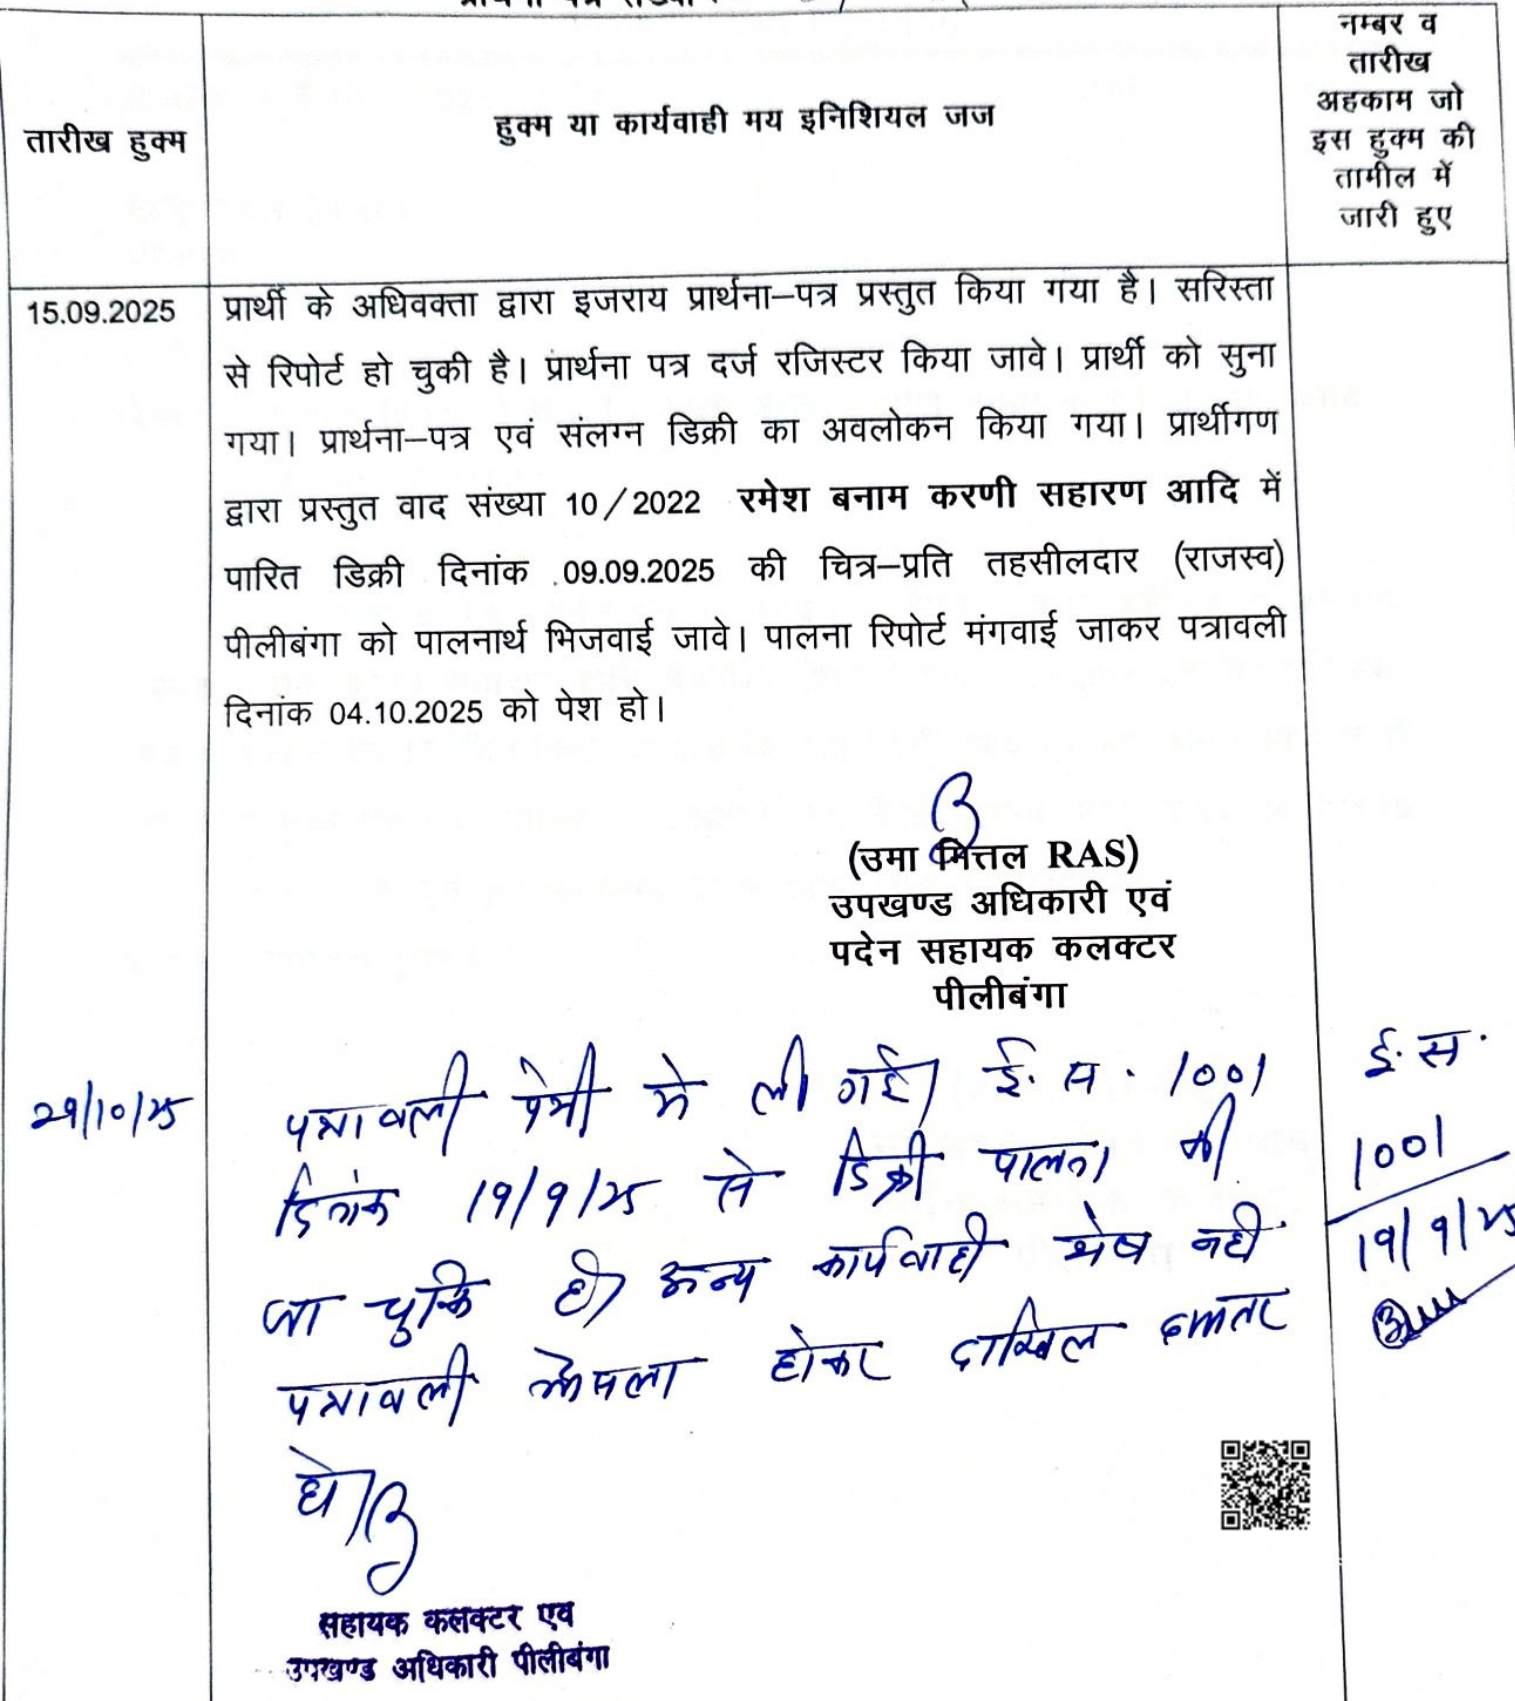 तारीख हुक्म
हुक्म या कार्यवाही मय इनिशियल जज
नम्बर व
तारीख
अहकाम जो
इस हुक्म की
तामील में
जारी हुए
15.09.2025
प्रार्थी के अधिवक्ता द्वारा इजराय प्रार्थना–पत्र प्रस्तुत किया गया है। सरिस्ता
से रिपोर्ट हो चुकी है। प्रार्थना पत्र दर्ज रजिस्टर किया जावे। प्रार्थी को सुना
गया। प्रार्थना–पत्र एवं संलग्न डिक्री का अवलोकन किया गया। प्रार्थीगण
द्वारा प्रस्तुत वाद संख्या 10/2022 रमेश बनाम करणी सहारण आदि में
पारित डिक्री दिनांक 09.09.2025 की चित्र–प्रति तहसीलदार (राजस्व)
पीलीबंगा को पालनार्थ भिजवाई जावे। पालना रिपोर्ट मंगवाई जाकर पत्रावली
दिनांक 04.10.2025 को पेश हो।
(उमा मित्तल RAS)
उपखण्ड अधिकारी एवं
पदेन सहायक कलक्टर
पीलीबंगा
29/10/25
पत्रावली पेशी मे ली गई। ई. स. 1001
दिनांक 19/9/25 से डिक्री पालना की
जा चुकि है। अन्य कार्यवाही शेष नही
पत्रावली फैसला होकर दाखिल दफ्तर
हो।
ई. स.
1001
19/9/25
सहायक कलक्टर एव
उपखण्ड अधिकारी पीलीबंगा